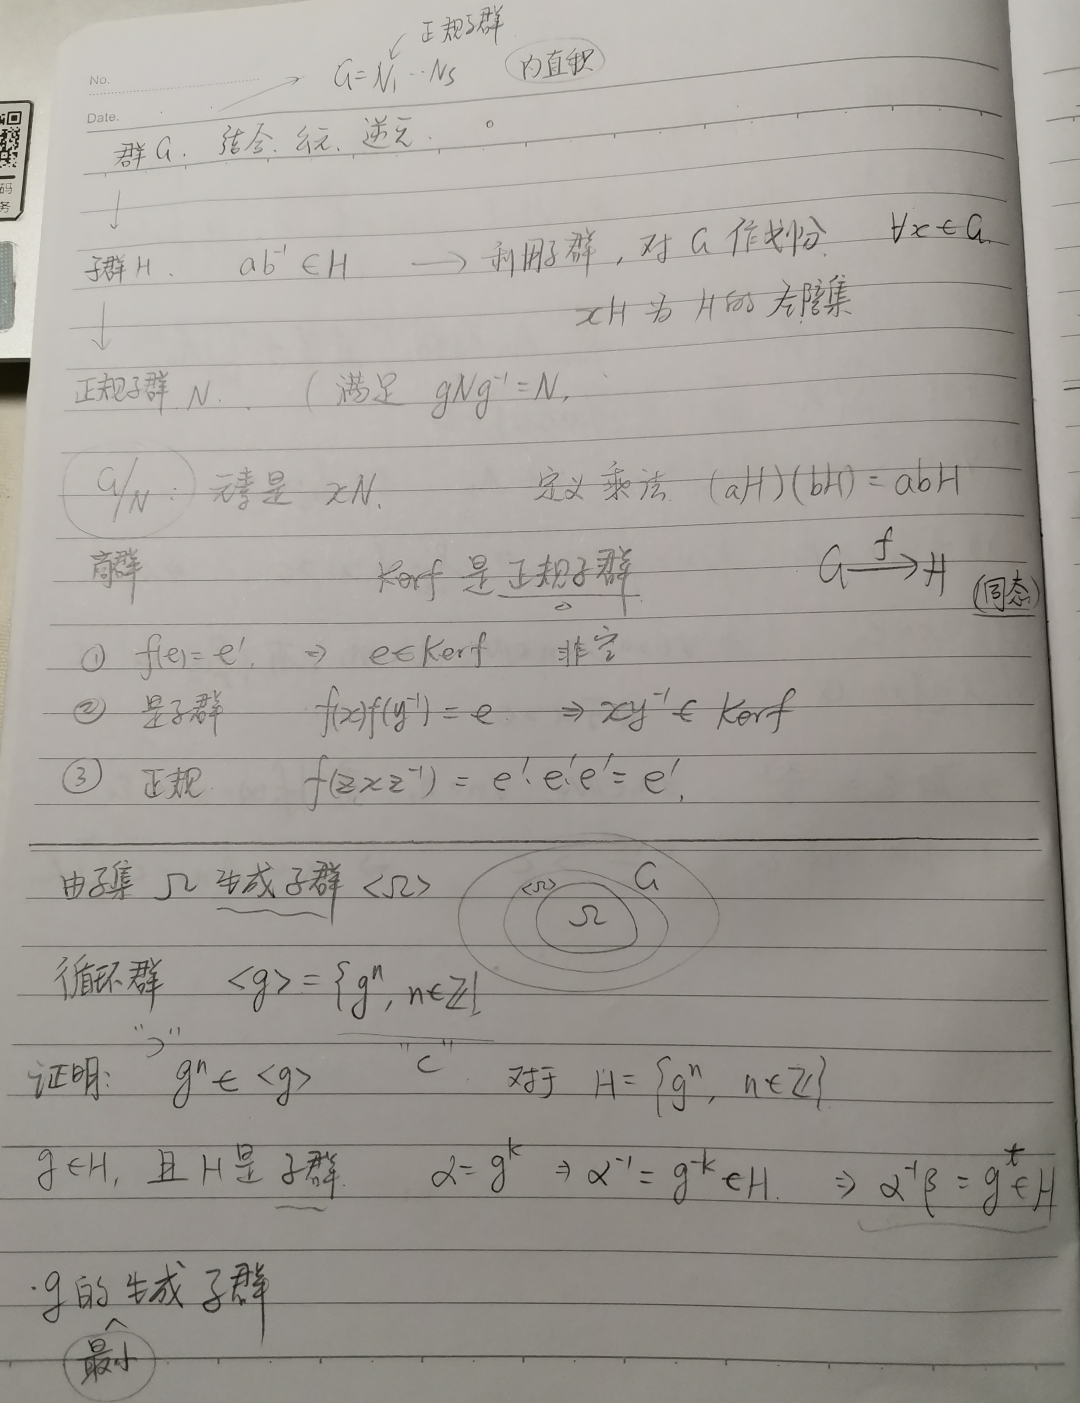 正规子群
No.
G=N₁…Ns 内直积
Date.
群G. 结合. 幺元. 逆元.
子群H. ab⁻¹∈H → 利用子群, 对G作划分. ∀x∈G.
xH为H的左陪集
正规子群N. (满足 gNg⁻¹=N,
G/N: 元素是 xN. 定义乘法 (aH)(bH)=abH
商群 Kerf是正规子群 G —f→ H (同态)
① f(e)=e'. ⇒ e∈Kerf 非空
② 是子群 f(x)f(y⁻¹)=e ⇒ xy⁻¹∈Kerf
③ 正规 f(zxz⁻¹)=e'·e'·e'=e',
由子集 Ω 生成子群 <Ω>
<Ω> G
Ω
循环群 <g>={gⁿ, n∈ℤ}
"⊃" "⊂"
证明: gⁿ∈<g> 对于 H={gⁿ, n∈ℤ}
g∈H, 且H是子群. α=gᵏ ⇒ α⁻¹=g⁻ᵏ∈H. ⇒ α⁻¹β=gᵗ∈H
·g的生成子群
最小
码
务